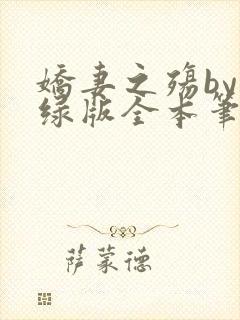 娇妻之殇by
绿版全本笔
萨蒙德